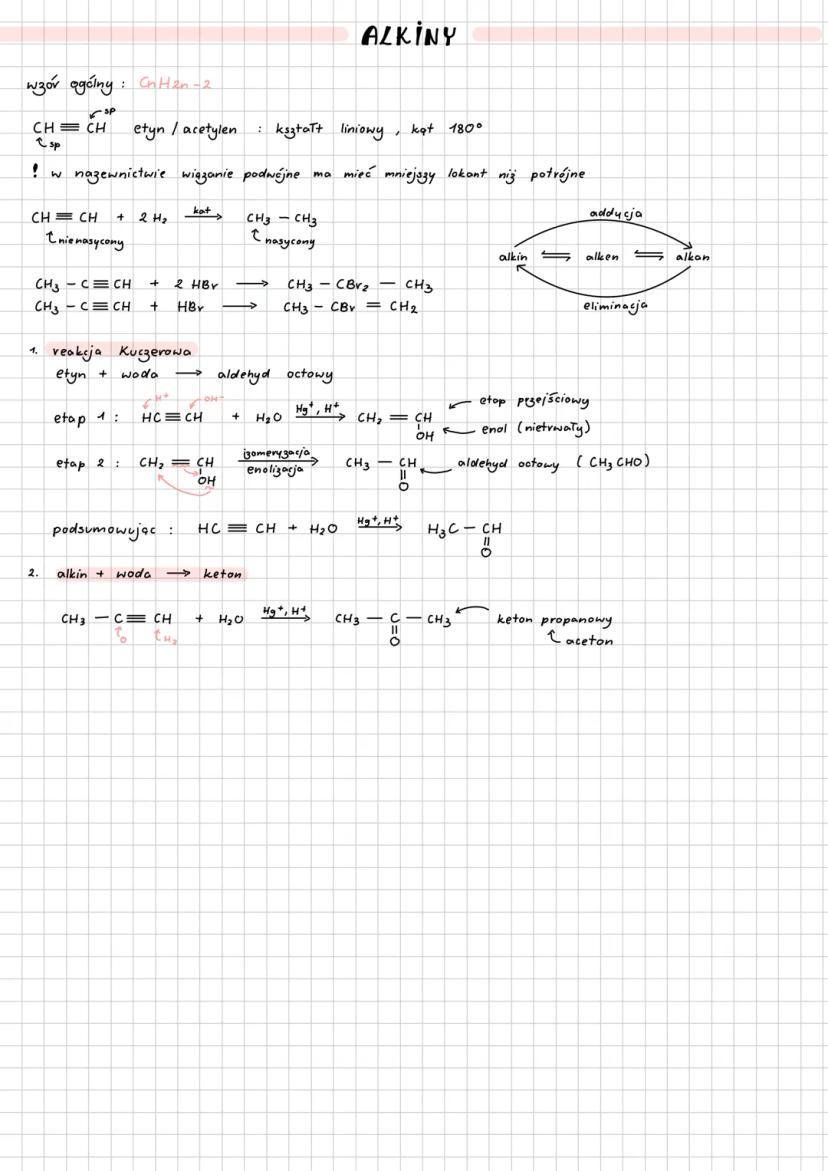 ALKINY
wzór ogólny : CnH2n-2
sp
CH ≡ CH etyn / acetylen : kształt liniowy , kąt 180°
sp
! w nazewnictwie wiązanie podwójne ma mieć mniejszy lokant niż potrójne
CH ≡ CH + 2 H₂ kat → CH₃ — CH₃
↑ nienasycony ↑ nasycony
addycja
alkin ⇌ alken ⇌ alkan
eliminacja
CH₃ – C ≡ CH + 2 HBr → CH₃ – CBr₂ — CH₃
CH₃ – C ≡ CH + HBr → CH₃ – CBr = CH₂
1. reakcja Kuczerowa
etyn + woda → aldehyd octowy
H⁺ OH⁻
etap 1 : HC ≡ CH + H₂O Hg⁺, H⁺ → CH₂ = CH ← etap przejściowy
OH ← enol (nietrwały)
etap 2 : CH₂ = CH izomeryzacja → CH₃ — CH ← aldehyd octowy ( CH₃ CHO)
OH enolizacja O
podsumowując : HC ≡ CH + H₂O Hg⁺, H⁺ → H₃C — CH
O
2. alkin + woda → keton
CH₃ — C ≡ CH + H₂O Hg⁺, H⁺ → CH₃ — C — CH₃ ← keton propanowy
↑ O ↑ H₂ O ↑ aceton